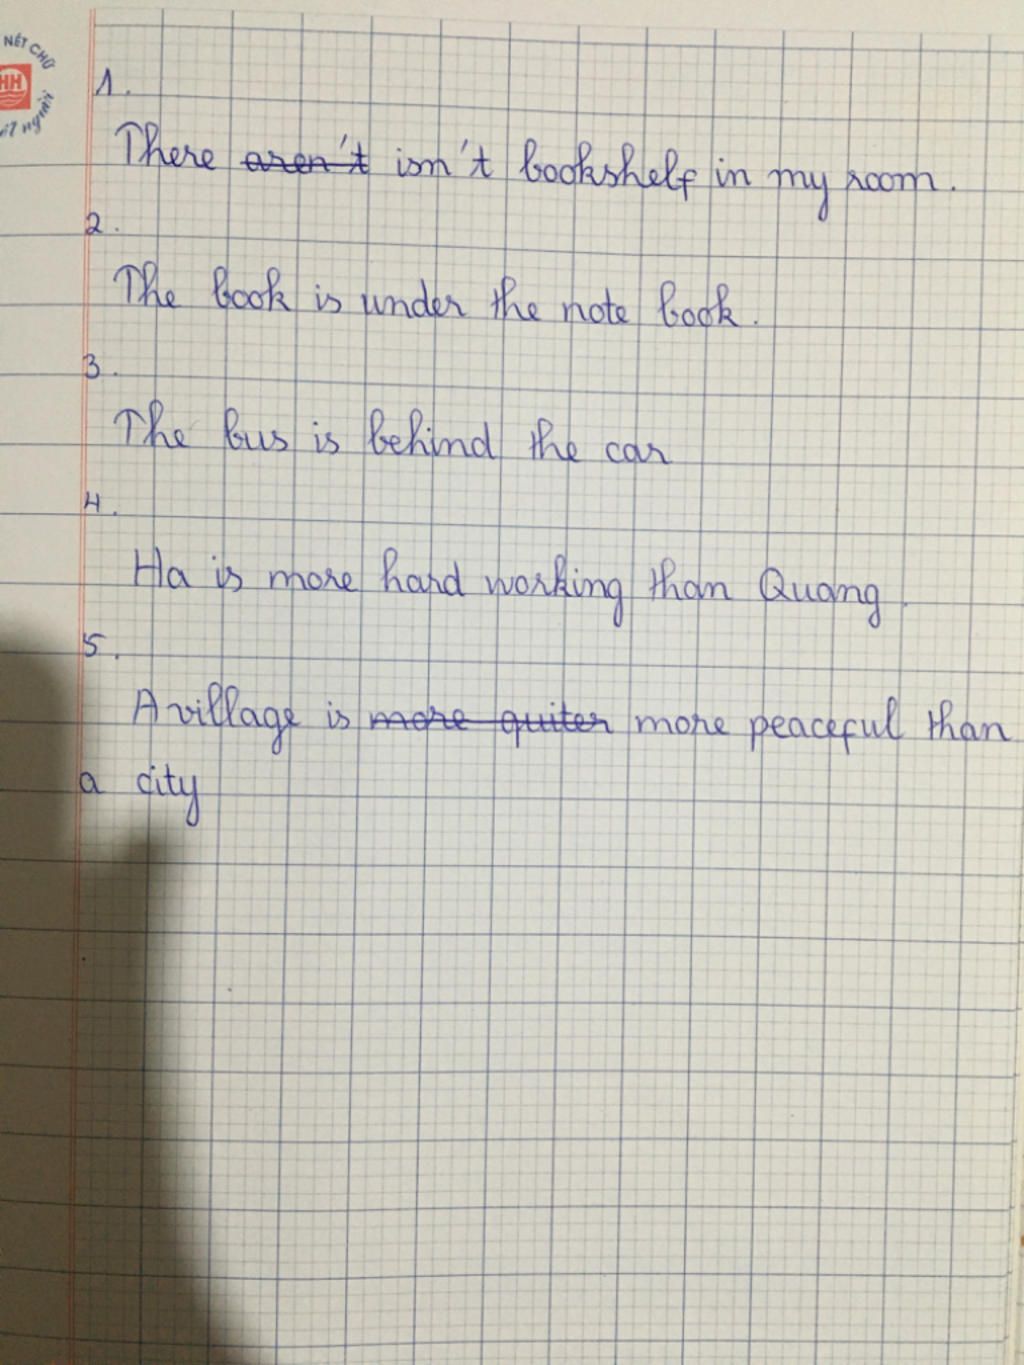 NÉT CHỮ
HH
nết người
1.
There aren't isn't bookshelf in my room.
2.
The book is under the note book.
3.
The bus is behind the car
4.
Ha is more hard working than Quang
5.
A village is more quiter more peaceful than
a city